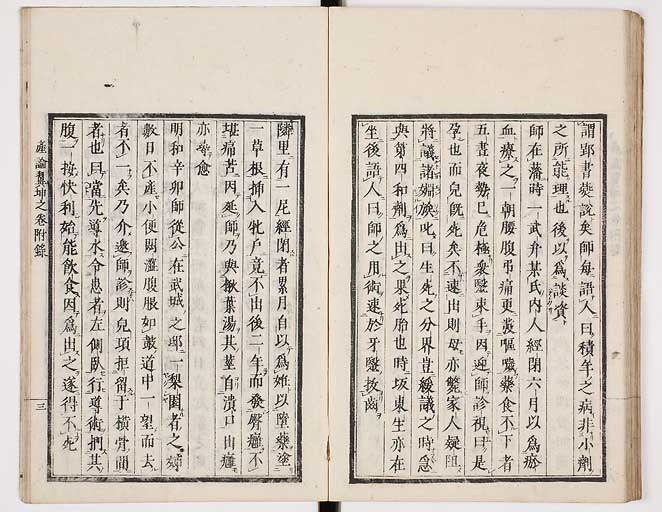 謂郢書燕說矣師每語人曰積年之病非小劑
之所能理也後以爲談資
師在藩時一武弁某氏内人經閉六月以爲瘀
血療之一朝腰腹弔痛更發嘔噦藥食不下者
五晝夜勢已危極衆醫束手因迎師診視曰是
孕也而兒旣死矣不速出則母亦斃家人疑阻
將議諸姻族叱曰生死之分界豈緩議之時急
與第四和劑爲出之果死胎也時坂東生亦在
坐後語人曰師之用術速於牙醫拔齒
隣里有一尼經閉者累月自以爲娠以墮藥塗
一草根揷入牝戶竟不出後二年而發臀癰不
堪痛苦因延師乃與楸葉湯其莖自潰口出癰
亦尋愈
明和辛卯師從公在武城之邸一梨園者之婦
數日不産小便閉澀腹脹如鼓道中一望而去
者不一矣乃介邀師診則兒項拒留于橫骨間
者也曰當先導水令患者左側臥行導術捫其
腹一按快利始能飮食因爲出之遂得不死
產論翼坤之卷附錄
三